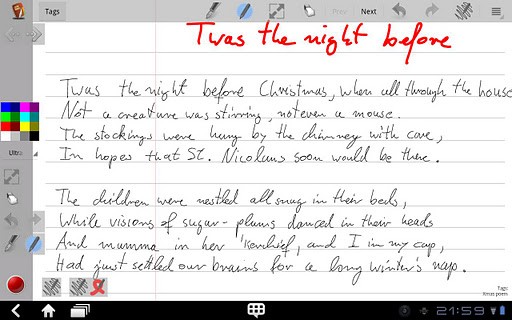 Tags
Prev
Next
Twas the night before
Twas the night before Christmas, when all through the house
Not a creature was stirring, not even a mouse.
The stockings were hung by the chimney with care,
In hopes that St. Nicolaus soon would be there.
The children were nestled all snug in their beds,
While visions of sugar-plums danced in their heads
And mumma in her 'kerchief, and I in my cap,
Had just settled our brains for a long winter's nap.
Ultra
Tags:
Xmas poem
21:59